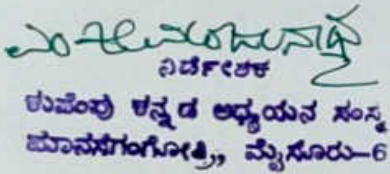 ಎಂ ಜಿ ಮಂಜುನಾಥ
ನಿರ್ದೇಶಕ
ಕುವೆಂಪು ಕನ್ನಡ ಅಧ್ಯಯನ ಸಂಸ್ಥೆ
ಮಾನಸಗಂಗೋತ್ರಿ, ಮೈಸೂರು–6